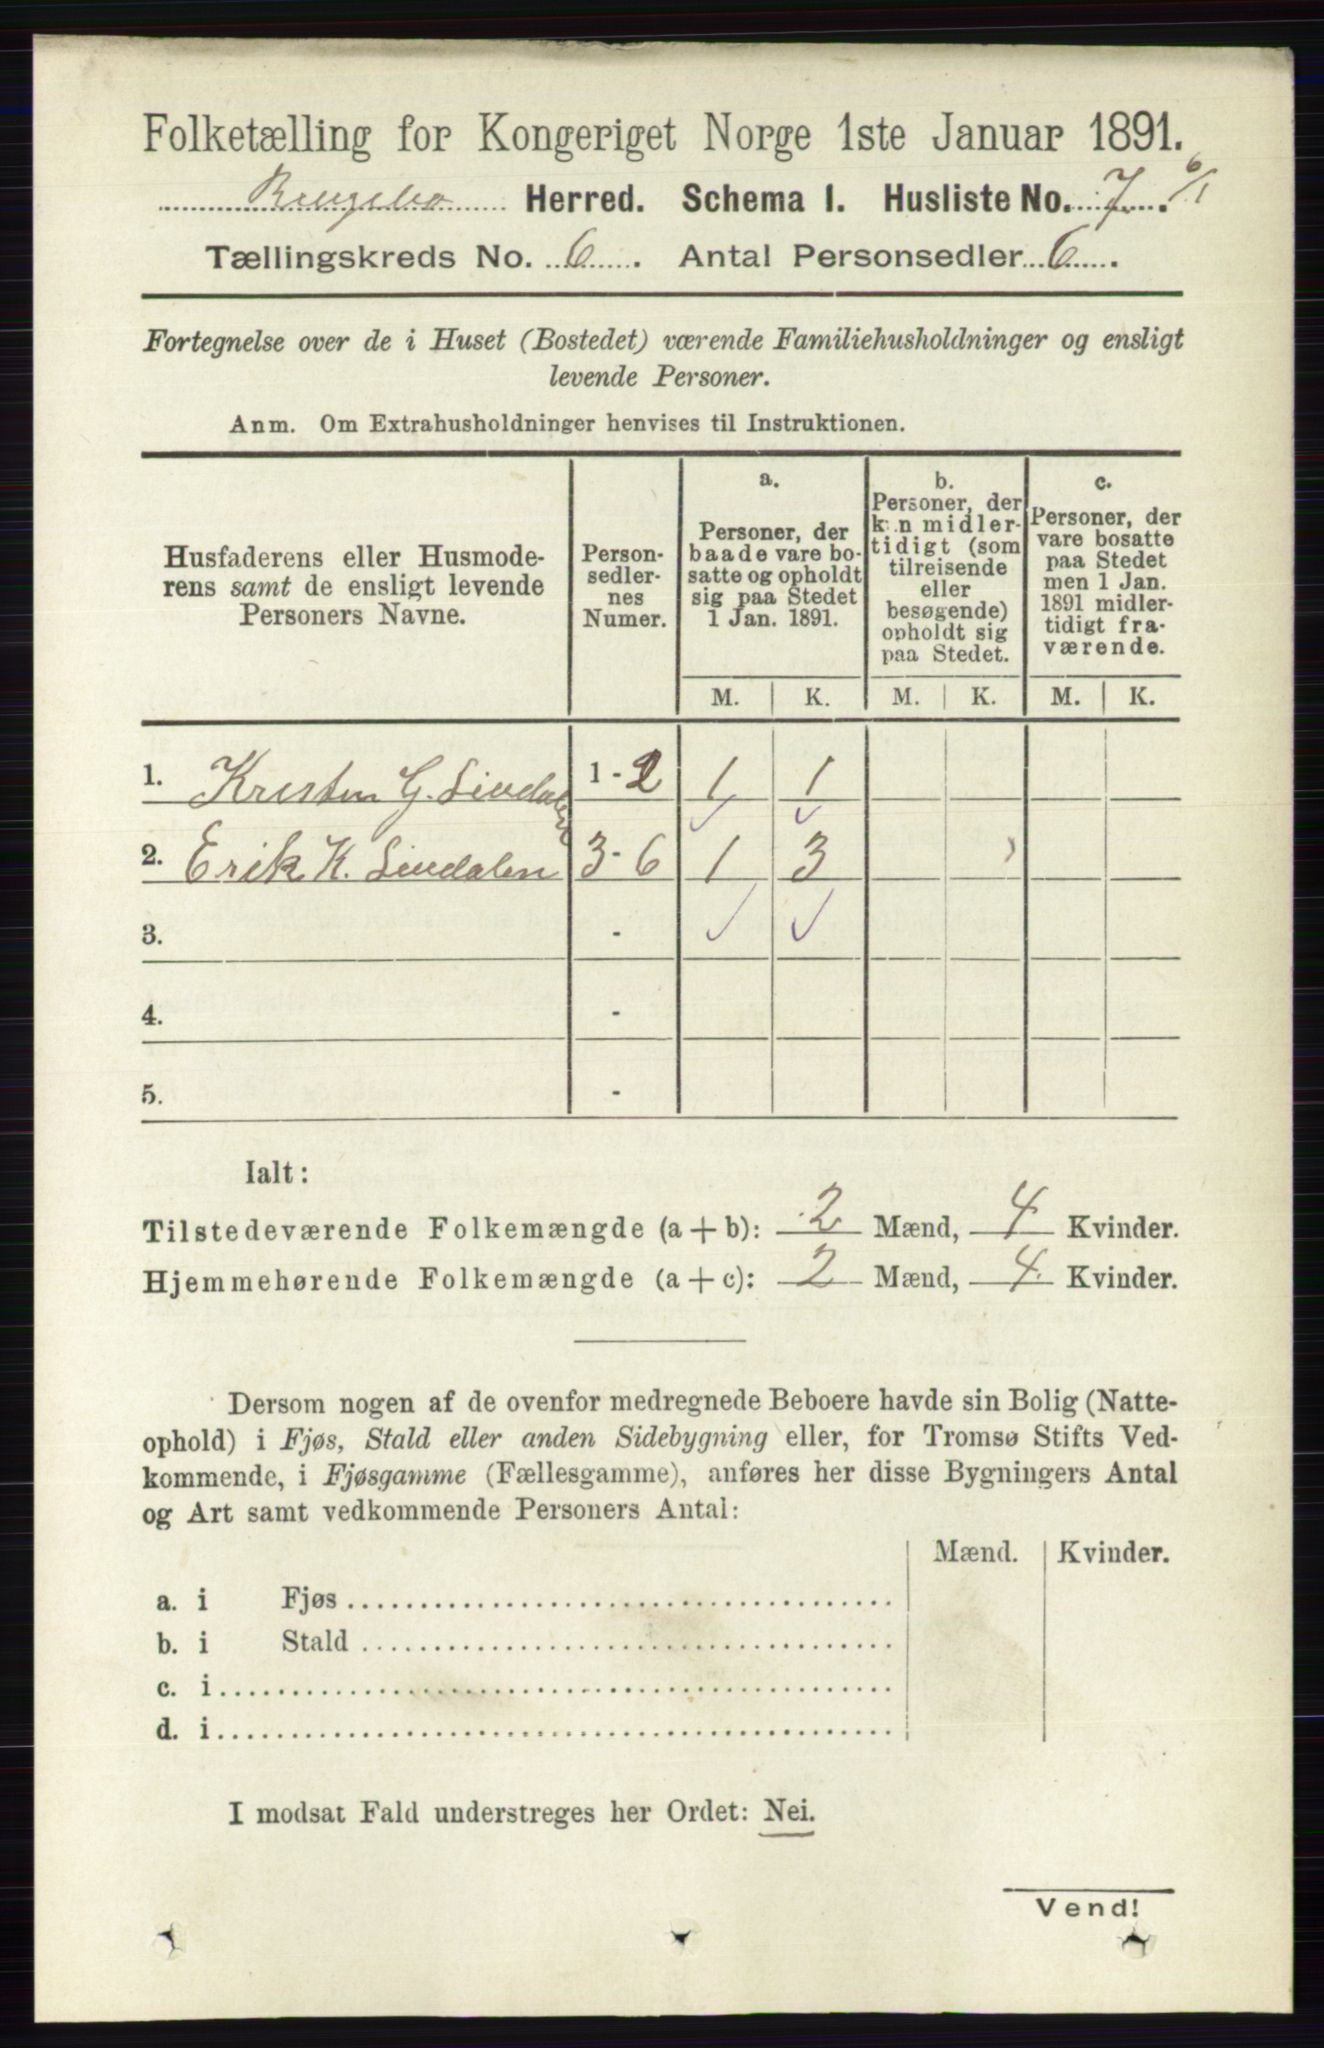 Folketælling for Kongeriget Norge 1ste Januar 1891.
Ringebo Herred. Schema I. Husliste No. 7. 6/1
Tællingskreds No. 6. Antal Personsedler 6.
Fortegnelse over de i Huset (Bostedet) værende Familiehusholdninger og ensligt
levende Personer.
Anm. Om Extrahusholdninger henvises til Instruktionen.
Husfaderens eller Husmode-
rens samt de ensligt levende
Personers Navne.
Person-
sedler-
nes
Numer.
a.
Personer, der
baade vare bo-
satte og opholdt
sig paa Stedet
1 Jan. 1891.
b.
Personer, der
kun midler-
tidigt (som
tilreisende
eller
besøgende)
opholdt sig
paa Stedet.
c.
Personer, der
vare bosatte
paa Stedet
men 1 Jan.
1891 midler-
tidigt fra-
værende.
M. K. M. K. M. K.
1. Kresten G. Lindalen 1 - 2 1 1
2. Erik K. Lindalen 3 - 6 1 3
3. -
4. -
5. -
Ialt:
Tilstedeværende Folkemængde (a + b): 2 Mænd, 4 Kvinder.
Hjemmehørende Folkemængde (a + c): 2 Mænd, 4 Kvinder.
Dersom nogen af de ovenfor medregnede Beboere havde sin Bolig (Natte-
ophold) i Fjøs, Stald eller anden Sidebygning eller, for Tromsø Stifts Ved-
kommende, i Fjøsgamme (Fællesgamme), anføres her disse Bygningers Antal
og Art samt vedkommende Personers Antal:
Mænd. Kvinder.
a. i Fjøs
b. i Stald
c. i
d. i
I modsat Fald understreges her Ordet: Nei.
Vend!